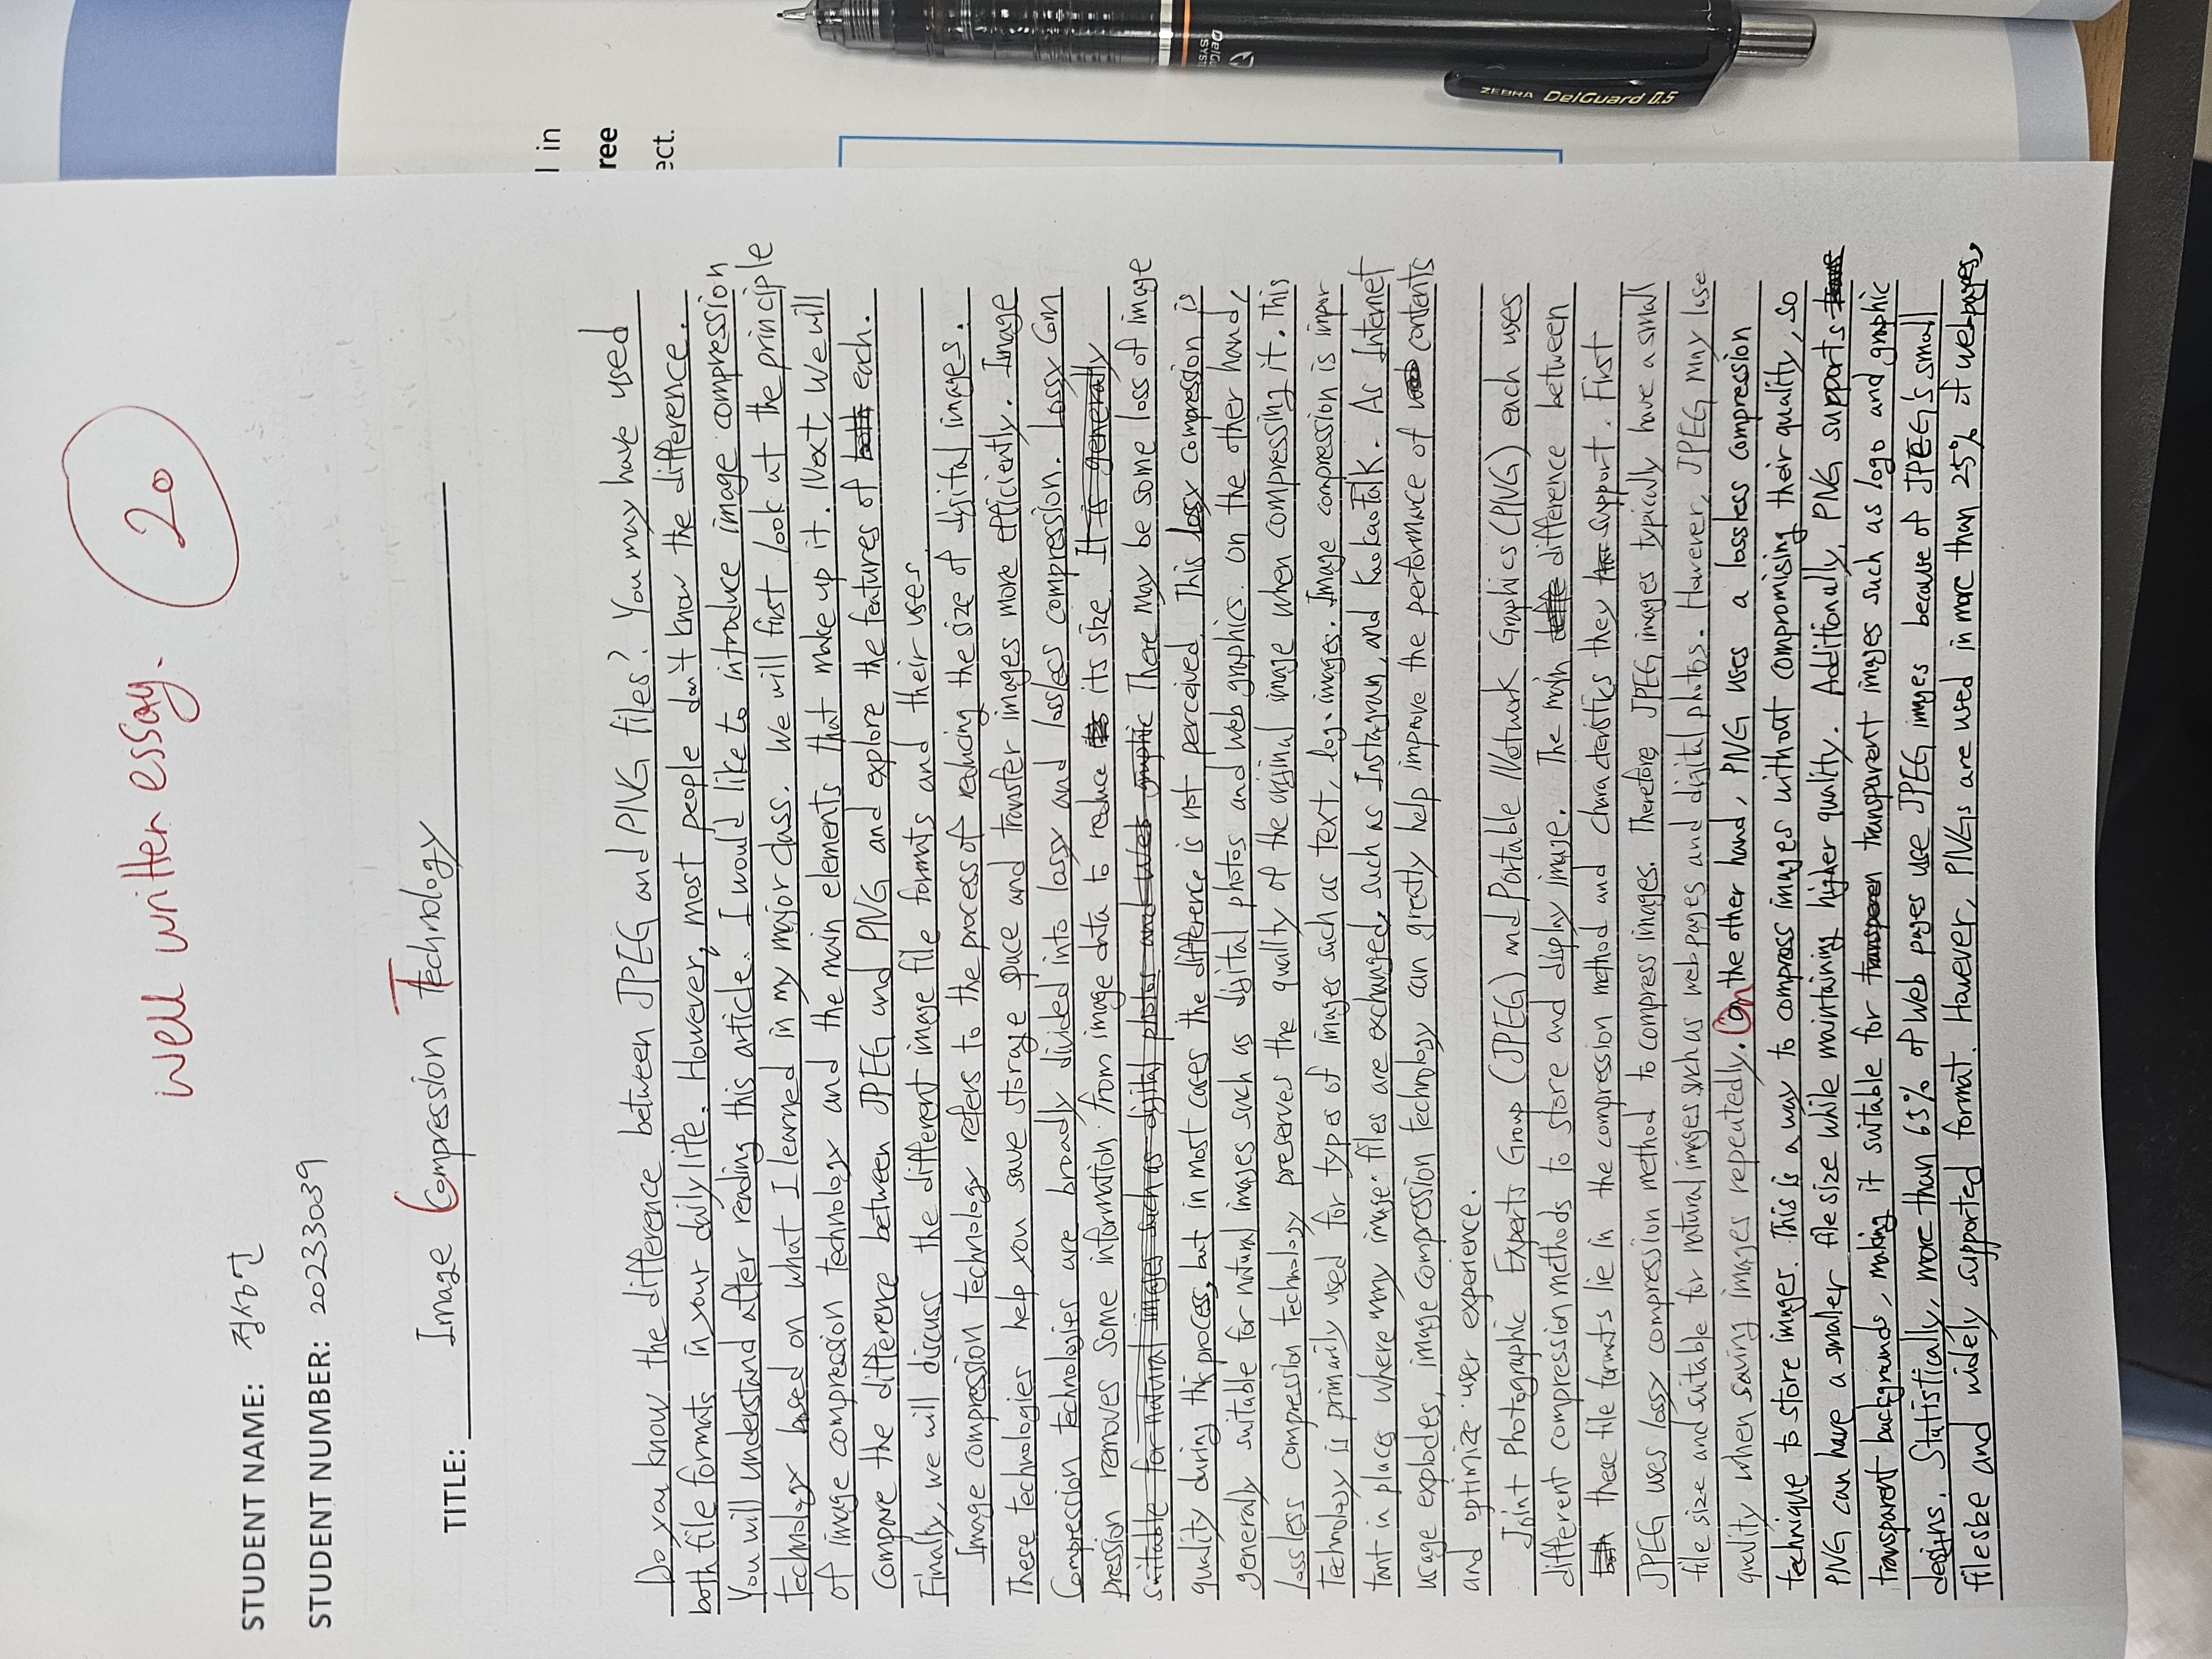 well written essay. 20
STUDENT NAME: 정성언
STUDENT NUMBER: 20233039
TITLE: Image Compression Technology
Do you know the difference between JPEG and PNG files? You may have used
both file formats in your daily life. However, most people don't know the difference.
You will understand after reading this article. I would like to introduce image compression
technology based on what I learned in my major class. We will first look at the principle
of image compression technology and the main elements that make up it. Next, We will
compare the difference between JPEG and PNG and explore the features of both each.
Finally, we will discuss the different image file formats and their uses.
Image compression technology refers to the process of reducing the size of digital images.
These technologies help you save storage space and transfer images more efficiently. Image
Compression technologies are broadly divided into lossy and lossless compression. Lossy Com
pression removes some information from image data to reduce its size. It is generally
suitable for natural images such as digital photos and Web graphic There may be some loss of image
quality during this process, but in most cases the difference is not perceived. This lossy compression is
generally suitable for natural images such as digital photos and web graphics. On the other hand,
lossless compression technology preserves the quality of the original image when compressing it. This
technology is primarily used for types of images such as text, logo images. Image compression is impor
tant in places where many image files are exchanged, such as Instagram, and KaokaoTalk. As Internet
usage explodes, image compression technology can greatly help improve the performance of contents
and optimize user experience.
Joint Photographic Experts Group (JPEG) and Portable Network Graphics (PNG) each uses
different compression methods to store and display image. The main difference between
both these file formats lie in the compression method and characteristics they support. First
JPEG uses lossy compression method to compress images. Therefore JPEG images typically have a small
file size and suitable for natural images such as web pages and digital photos. However, JPEG may lose
quality when saving images repeatedly. On the other hand, PNG uses a lossless compression
technique to store images. This is a way to compress images without compromising their quality, so
PNG can have a smaller file size while maintaining higher quality. Additionally, PNG supports trans
transparent backgrounds, making it suitable for transparen transparent images such as logo and graphic
designs. Statistically, more than 65% of Web pages use JPEG images because of JPEG's small
file size and widely supported format. However, PNGs are used in more than 25% of web pages,
l in
ree
ect.
ZEBRA DelGuard 0.5